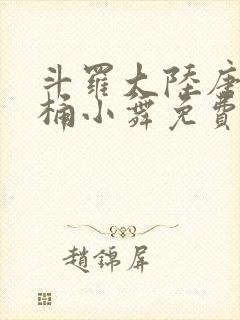 斗羅大陸唐
桶小舞免費
趙錦屏